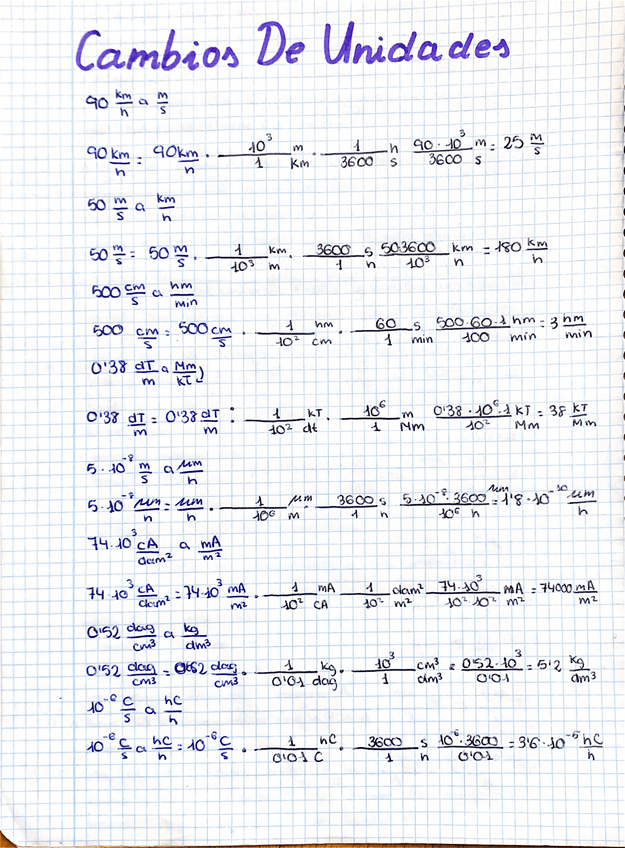 Cambios De Unidades
90 km/h a m/s
90 km/h = 90 km/h · 10³/1 m/km · 1/3600 h/s 90·10³/3600 m/s = 25 m/s
50 m/s a km/h
50 m/s = 50 m/s · 1/10³ km/m · 3600/1 s/h 50·3600/10³ km/h = 180 km/h
500 cm/s a hm/min
500 cm/s = 500 cm/s · 1/10² hm/cm · 60/1 s/min 500·60·1/100 hm/min = 3 hm/min
0'38 dT/m a Mm/kT
0'38 dT/m = 0'38 dT/m : 1/10² kT/dt · 10⁶/1 m/Mm 0'38·10⁶·1/10² kT/Mm = 38 kT/Mm
5·10⁻⁸ m/s a μm/h
5·10⁻⁸ μm/h = μm/h · 1/10⁶ μm/m · 3600/1 s/h 5·10⁻⁸·3600/10⁶ μm/h = 1'8·10⁻¹⁰ μm/h
74·10³ cA/dam² a mA/m²
74·10³ cA/dam² = 74·10³ mA/m² · 1/10² mA/cA 1/10² dam²/m² 74·10³/10²·10² mA/m² = 74000 mA/m²
0'52 dag/cm³ a kg/dm³
0'52 dag/cm³ = 0'52 dag/cm³ · 1/0'01 kg/dag · 10³/1 cm³/dm³ = 0'52·10³/0'01 = 5'2 kg/dm³
10⁻⁶ C/s a hC/h
10⁻⁶ C/s a hC/h = 10⁻⁶ C/s · 1/0'01 hC/C · 3600/1 s/h 10⁻⁶·3600/0'01 = 3'6·10⁻⁵ hC/h